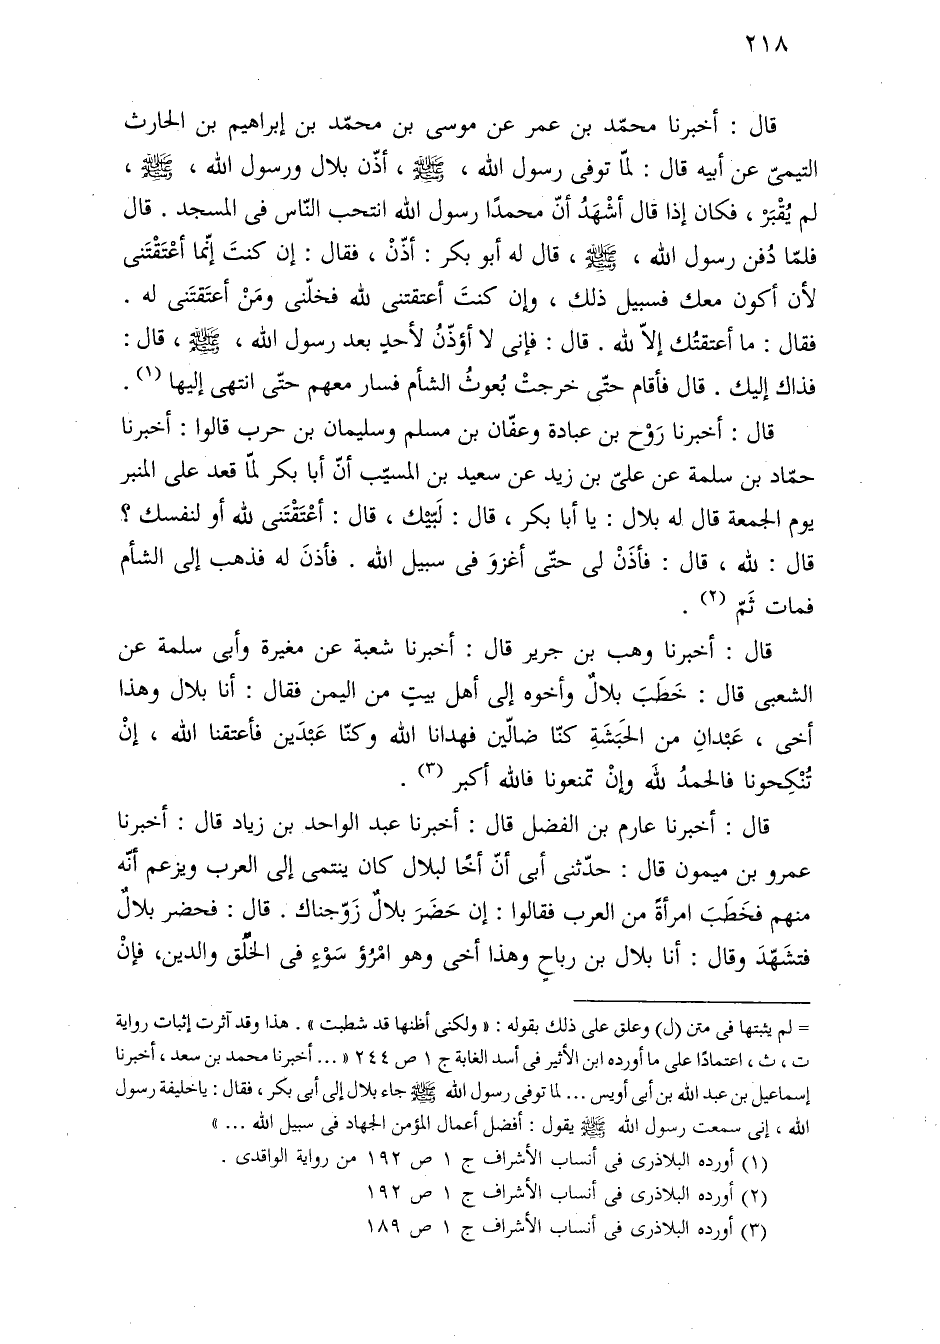 ٢١٨
قال : أخبرنا محمّد بن عمر عن موسى بن محمّد بن إبراهيم بن الحارث
التيمىّ عن أبيه قال : لمّا توفى رسول الله ، ﷺ ، أذّن بلال ورسول الله ، ﷺ ،
لم يُقْبَرْ ، فكان إذا قال أشْهَدُ أنّ محمدًا رسول الله انتحب النّاس فى المسجد . قال
فلمّا دُفن رسول الله ، ﷺ ، قال له أبو بكر : أذّنْ ، فقال : إن كنتَ إنّما أعْتَقْتَنى
لأن أكون معك فسبيل ذلك ، وإن كنتَ أعتقتنى لله فخلّنى ومَنْ أعتَقتَنى له .
فقال : ما أعتقتُك إلاّ لله . قال : فإنى لا أؤذّنُ لأحدٍ بعد رسول الله ، ﷺ ، قال :
فذاك إليك . قال فأقام حتّى خرجتْ بُعوثُ الشأم فسار معهم حتّى انتهى إليها (١) .
قال : أخبرنا رَوْح بن عبادة وعفّان بن مسلم وسليمان بن حرب قالوا : أخبرنا
حمّاد بن سلمة عن علىّ بن زيد عن سعيد بن المسيّب أنّ أبا بكر لمّا قعد على المنبر
يوم الجمعة قال له بلال : يا أبا بكر ، قال : لَبّيْك ، قال : أعْتَقْتَنى لله أو لنفسك ؟
قال : لله ، قال : فأذَنْ لى حتّى أغزوَ فى سبيل الله . فأذنَ له فذهب إلى الشأم
فمات ثَمّ (٢) .
قال : أخبرنا وهب بن جرير قال : أخبرنا شعبة عن مغيرة وأبى سلمة عن
الشعبى قال : خَطَبَ بلالٌ وأخوه إلى أهل بيتٍ من اليمن فقال : أنا بلال وهذا
أخى ، عَبْدانِ من الحَبَشَةِ كنّا ضالّين فهدانا الله وكنّا عَبْدَين فأعتقنا الله ، إنْ
تُنْكِحونا فالحمدُ لله وإنْ تمنعونا فالله أكبر (٣) .
قال : أخبرنا عارم بن الفضل قال : أخبرنا عبد الواحد بن زياد قال : أخبرنا
عمرو بن ميمون قال : حدّثنى أبى أنّ أخًا لبلال كان ينتمى إلى العرب ويزعم أنّه
منهم فخَطَبَ امرأةً من العرب فقالوا : إن حَضَرَ بلالٌ زَوّجناك . قال : فحضر بلالٌ
فتشَهّدَ وقال : أنا بلال بن رباحٍ وهذا أخى وهو امْرُؤ سَوْءٍ فى الخُلُق والدين، فإنْ
= لم يثبتها فى متن (ل) وعلق على ذلك بقوله : « ولكنى أظنها قد شطبت » . هذا وقد آثرت إثبات رواية
ت ، ث ، اعتمادًا على ما أورده ابن الأثير فى أسد الغابة ج ١ ص ٢٤٤ « ... أخبرنا محمد بن سعد ، أخبرنا
إسماعيل بن عبد الله بن أبى أويس ... لما توفى رسول الله ﷺ جاء بلال إلى أبى بكر ، فقال : ياخليفة رسول
الله ، إنى سمعت رسول الله ﷺ يقول : أفضل أعمال المؤمن الجهاد فى سبيل الله ... »
(١) أورده البلاذرى فى أنساب الأشراف ج ١ ص ١٩٢ من رواية الواقدى .
(٢) أورده البلاذرى فى أنساب الأشراف ج ١ ص ١٩٢
(٣) أورده البلاذرى فى أنساب الأشراف ج ١ ص ١٨٩